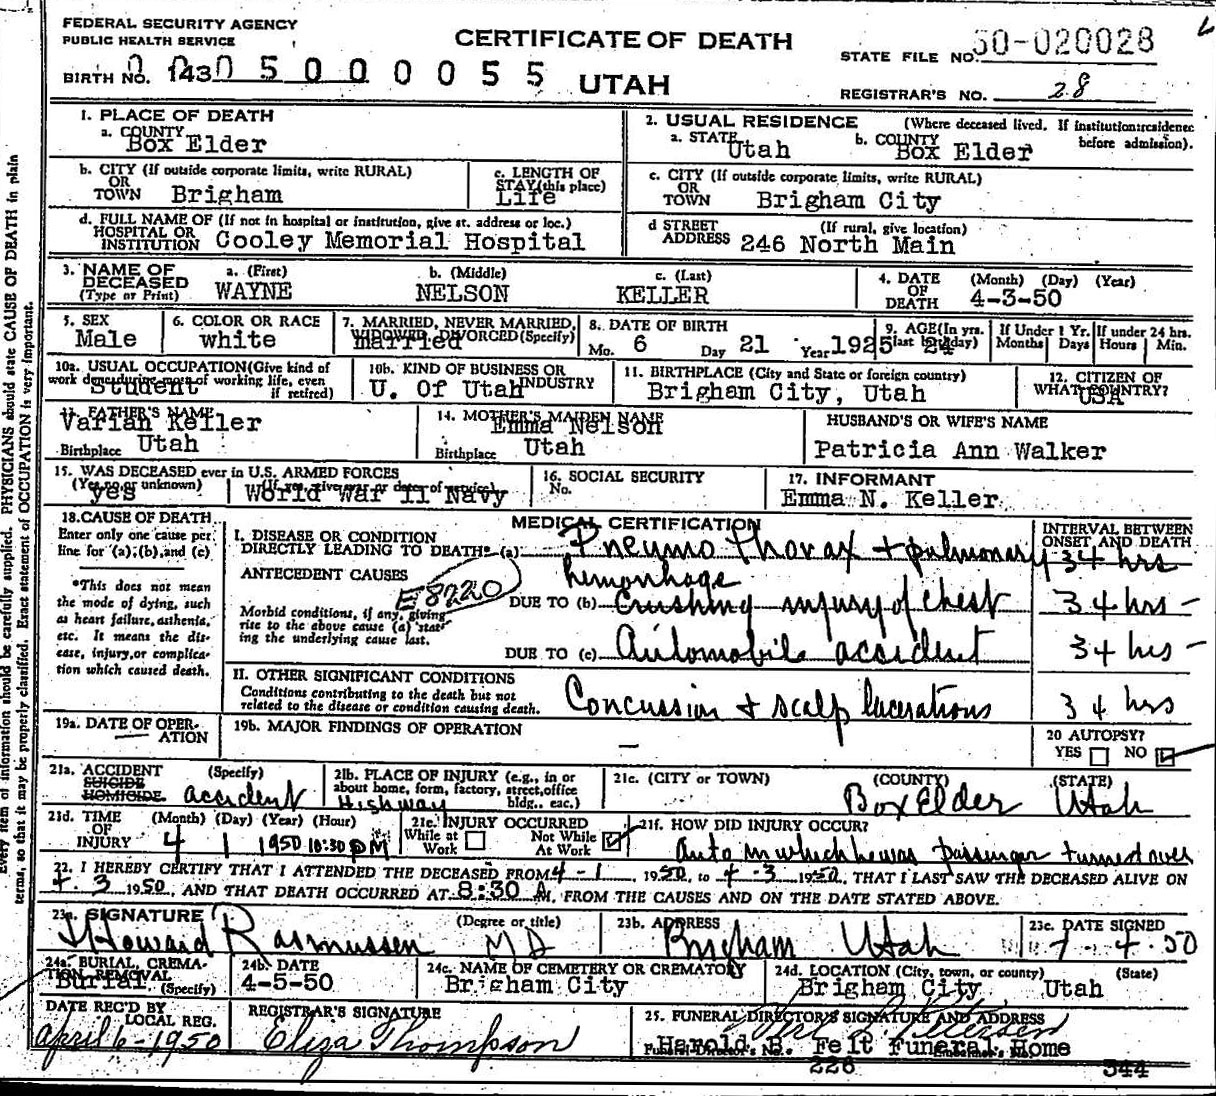 FEDERAL SECURITY AGENCY
PUBLIC HEALTH SERVICE
CERTIFICATE OF DEATH
STATE FILE NO. 50-020028
BIRTH NO. 143 0 5 0 0 0 0 5 5
UTAH
REGISTRAR'S NO. 28
1. PLACE OF DEATH
a. COUNTY
Box Elder
2. USUAL RESIDENCE (Where deceased lived. If institution:residence before admission).
a. STATE Utah b. COUNTY Box Elder
b. CITY (If outside corporate limits, write RURAL)
OR
TOWN Brigham
c. LENGTH OF
STAY(this place)
Life
c. CITY (If outside corporate limits, write RURAL)
OR
TOWN Brigham City
d. FULL NAME OF (If not in hospital or institution, give st. address or loc.)
HOSPITAL OR
INSTITUTION Cooley Memorial Hospital
d STREET (If rural, give location)
ADDRESS 246 North Main
3. NAME OF DECEASED (Type or Print)
a. (First) b. (Middle) c. (Last)
WAYNE NELSON KELLER
4. DATE OF DEATH (Month) (Day) (Year)
4-3-50
5. SEX
Male
6. COLOR OR RACE
white
7. MARRIED, NEVER MARRIED,
WIDOWED, DIVORCED(Specify)
married
8. DATE OF BIRTH
Mo. 6 Day 21 Year 1925
9. AGE(In yrs. last birthday)
24
If Under 1 Yr.
Months Days
If under 24 hrs.
Hours Min.
10a. USUAL OCCUPATION(Give kind of
work done during most of working life, even
if retired)
Student
10b. KIND OF BUSINESS OR
INDUSTRY
U. Of Utah
11. BIRTHPLACE (City and State or foreign country)
Brigham City, Utah
12. CITIZEN OF
WHAT COUNTRY?
USA
13. FATHER'S NAME
Varian Keller
Birthplace Utah
14. MOTHER'S MAIDEN NAME
Emma Nelson
Birthplace Utah
HUSBAND'S OR WIFE'S NAME
Patricia Ann Walker
15. WAS DECEASED ever in U.S. ARMED FORCES
(Yes, no, or unknown) (If yes, give war or dates of service)
yes World War II Navy
16. SOCIAL SECURITY
No.
17. INFORMANT
Emma N. Keller
18.CAUSE OF DEATH
Enter only one cause per
line for (a),(b),and (c)
*This does not mean
the mode of dying, such
as heart failure, asthenia,
etc. It means the dis-
ease, injury,or complica-
tion which caused death.
MEDICAL CERTIFICATION
INTERVAL BETWEEN
ONSET AND DEATH
I. DISEASE OR CONDITION
DIRECTLY LEADING TO DEATH* (a) Pneumo thorax + pulmonary 34 hrs
hemorrhage
ANTECEDENT CAUSES
E8220
Morbid conditions, if any, giving
rise to the above cause (a) stat-
ing the underlying cause last.
DUE TO (b) Crushing injury of chest 34 hrs -
DUE TO (c) Automobile accident 34 hrs -
II. OTHER SIGNIFICANT CONDITIONS
Conditions contributing to the death but not
related to the disease or condition causing death.
Concussion + scalp lacerations 34 hrs
19a. DATE OF OPER-
ATION
19b. MAJOR FINDINGS OF OPERATION
20 AUTOPSY?
YES NO
21a. ACCIDENT (Specify)
SUICIDE
HOMICIDE accident
21b. PLACE OF INJURY (e.g., in or
about home, form, factory, street,office
bldg., eac.)
Highway
21c. (CITY or TOWN) (COUNTY) (STATE)
Box Elder Utah
21d. TIME OF INJURY (Month) (Day) (Year) (Hour)
4 1 1950 10:30 PM
21e. INJURY OCCURRED
While at Work Not While At Work
21f. HOW DID INJURY OCCUR?
Auto in which he was passenger turned over
22. I HEREBY CERTIFY THAT I ATTENDED THE DECEASED FROM 4-1, 1950, to 4-3 1950, THAT I LAST SAW THE DECEASED ALIVE ON
4.3 1950, AND THAT DEATH OCCURRED AT 8:30 A M, FROM THE CAUSES AND ON THE DATE STATED ABOVE.
23a. SIGNATURE (Degree or title)
J Howard Rasmussen MD
23b. ADDRESS
Brigham Utah
23c. DATE SIGNED
4.50
24a. BURIAL, CREMA-
TION REMOVAL
(Specify)
Burial
24b. DATE
4-5-50
24c. NAME OF CEMETERY OR CREMATORY
Brigham City
24d. LOCATION (City, town, or county) (State)
Brigham City Utah
DATE REC'D BY
LOCAL REG.
April 6-1950
REGISTRAR'S SIGNATURE
Eliza Thompson
25. FUNERAL DIRECTOR'S SIGNATURE AND ADDRESS
Harold B. Felt Funeral Home
Funeral Director's No. Embalmer's No.
226 344
Every item of information should be carefully supplied. PHYSICIANS should state CAUSE OF DEATH in plain
terms, so that it may be properly classified. Exact statement of OCCUPATION is very important.